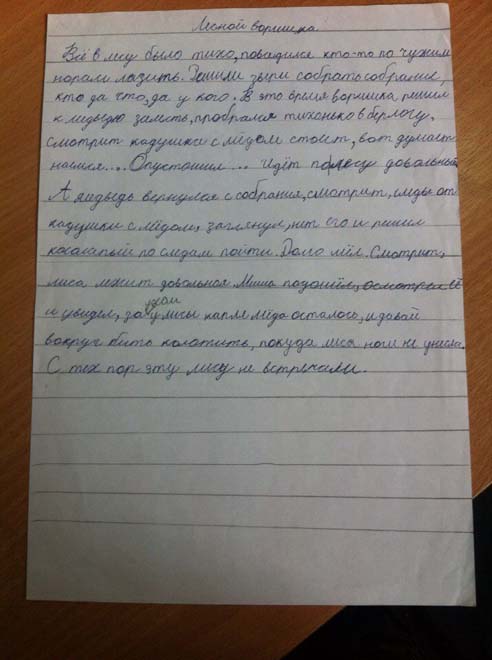 Лесной воришка.
Всё в лесу было тихо, повадился кто-то по чужим
норам лазить. Решили звери собрать собрание,
кто да что, да у кого. В это время воришка решил
к медьведю залезть, пробрался тихонько в берлогу,
смотрит кадушка с мёдом стоит, вот думает
наемся... Опустошил... Идёт по лесу довольный.
А медьведь вернулся с собрания, смотрит, следы от
кадушки с мёдом, заглянул, нет его и решил
косолапый по следам пойти. Долго шёл. Смотрит,
лиса лежит довольная. Миша подошёл, осмотрел её
и увидел, за ухом у лисы капля мёда осталось, и давай
вокруг бить колотить, покуда лиса ноги не унесла.
С тех пор эту лису не встречали.